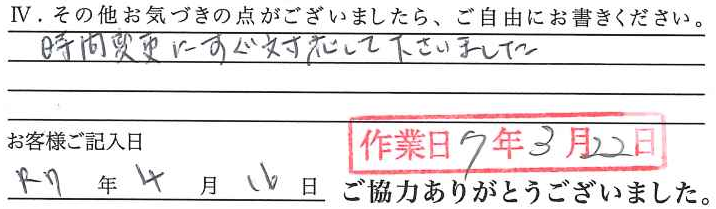 Ⅳ．その他お気づきの点がございましたら、ご自由にお書きください。
時間変更にすぐ対応して下さいました
お客様ご記入日
作業日7年3月22日
R7年4月16日
ご協力ありがとうございました。